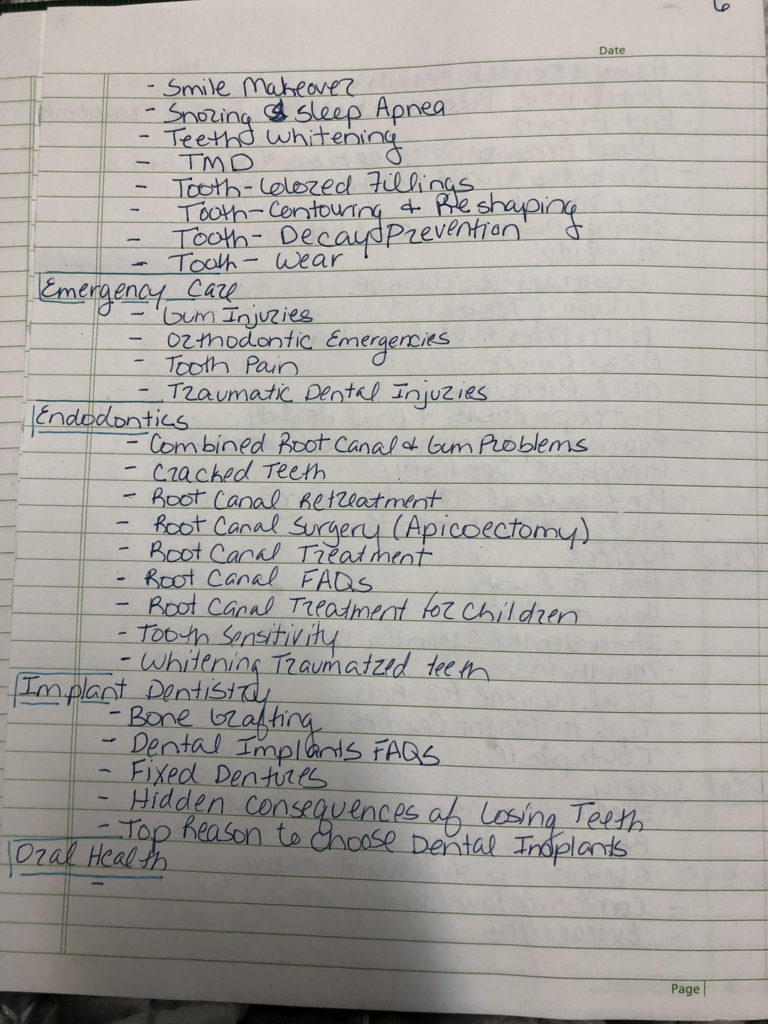 6
Date
- Smile Makeover
- Snoring & Sleep Apnea
- Teeth Whitening
- TMD
- Tooth-Colored Fillings
- Tooth-Contouring & Reshaping
- Tooth-Decay Prevention
- Tooth-Wear
Emergency Care
- Gum Injuries
- Orthodontic Emergencies
- Tooth Pain
- Traumatic Dental Injuries
Endodontics
- Combined Root Canal & Gum Problems
- Cracked Teeth
- Root Canal Retreatment
- Root Canal Surgery (Apicoectomy)
- Root Canal Treatment
- Root Canal FAQs
- Root Canal Treatment for Children
- Tooth Sensitivity
- Whitening Traumatzed teeth
Implant Dentistry
- Bone Grafting
- Dental Implants FAQs
- Fixed Dentures
- Hidden Consequences of Losing Teeth
- Top Reason to Choose Dental Implants
Oral Health
-
Page